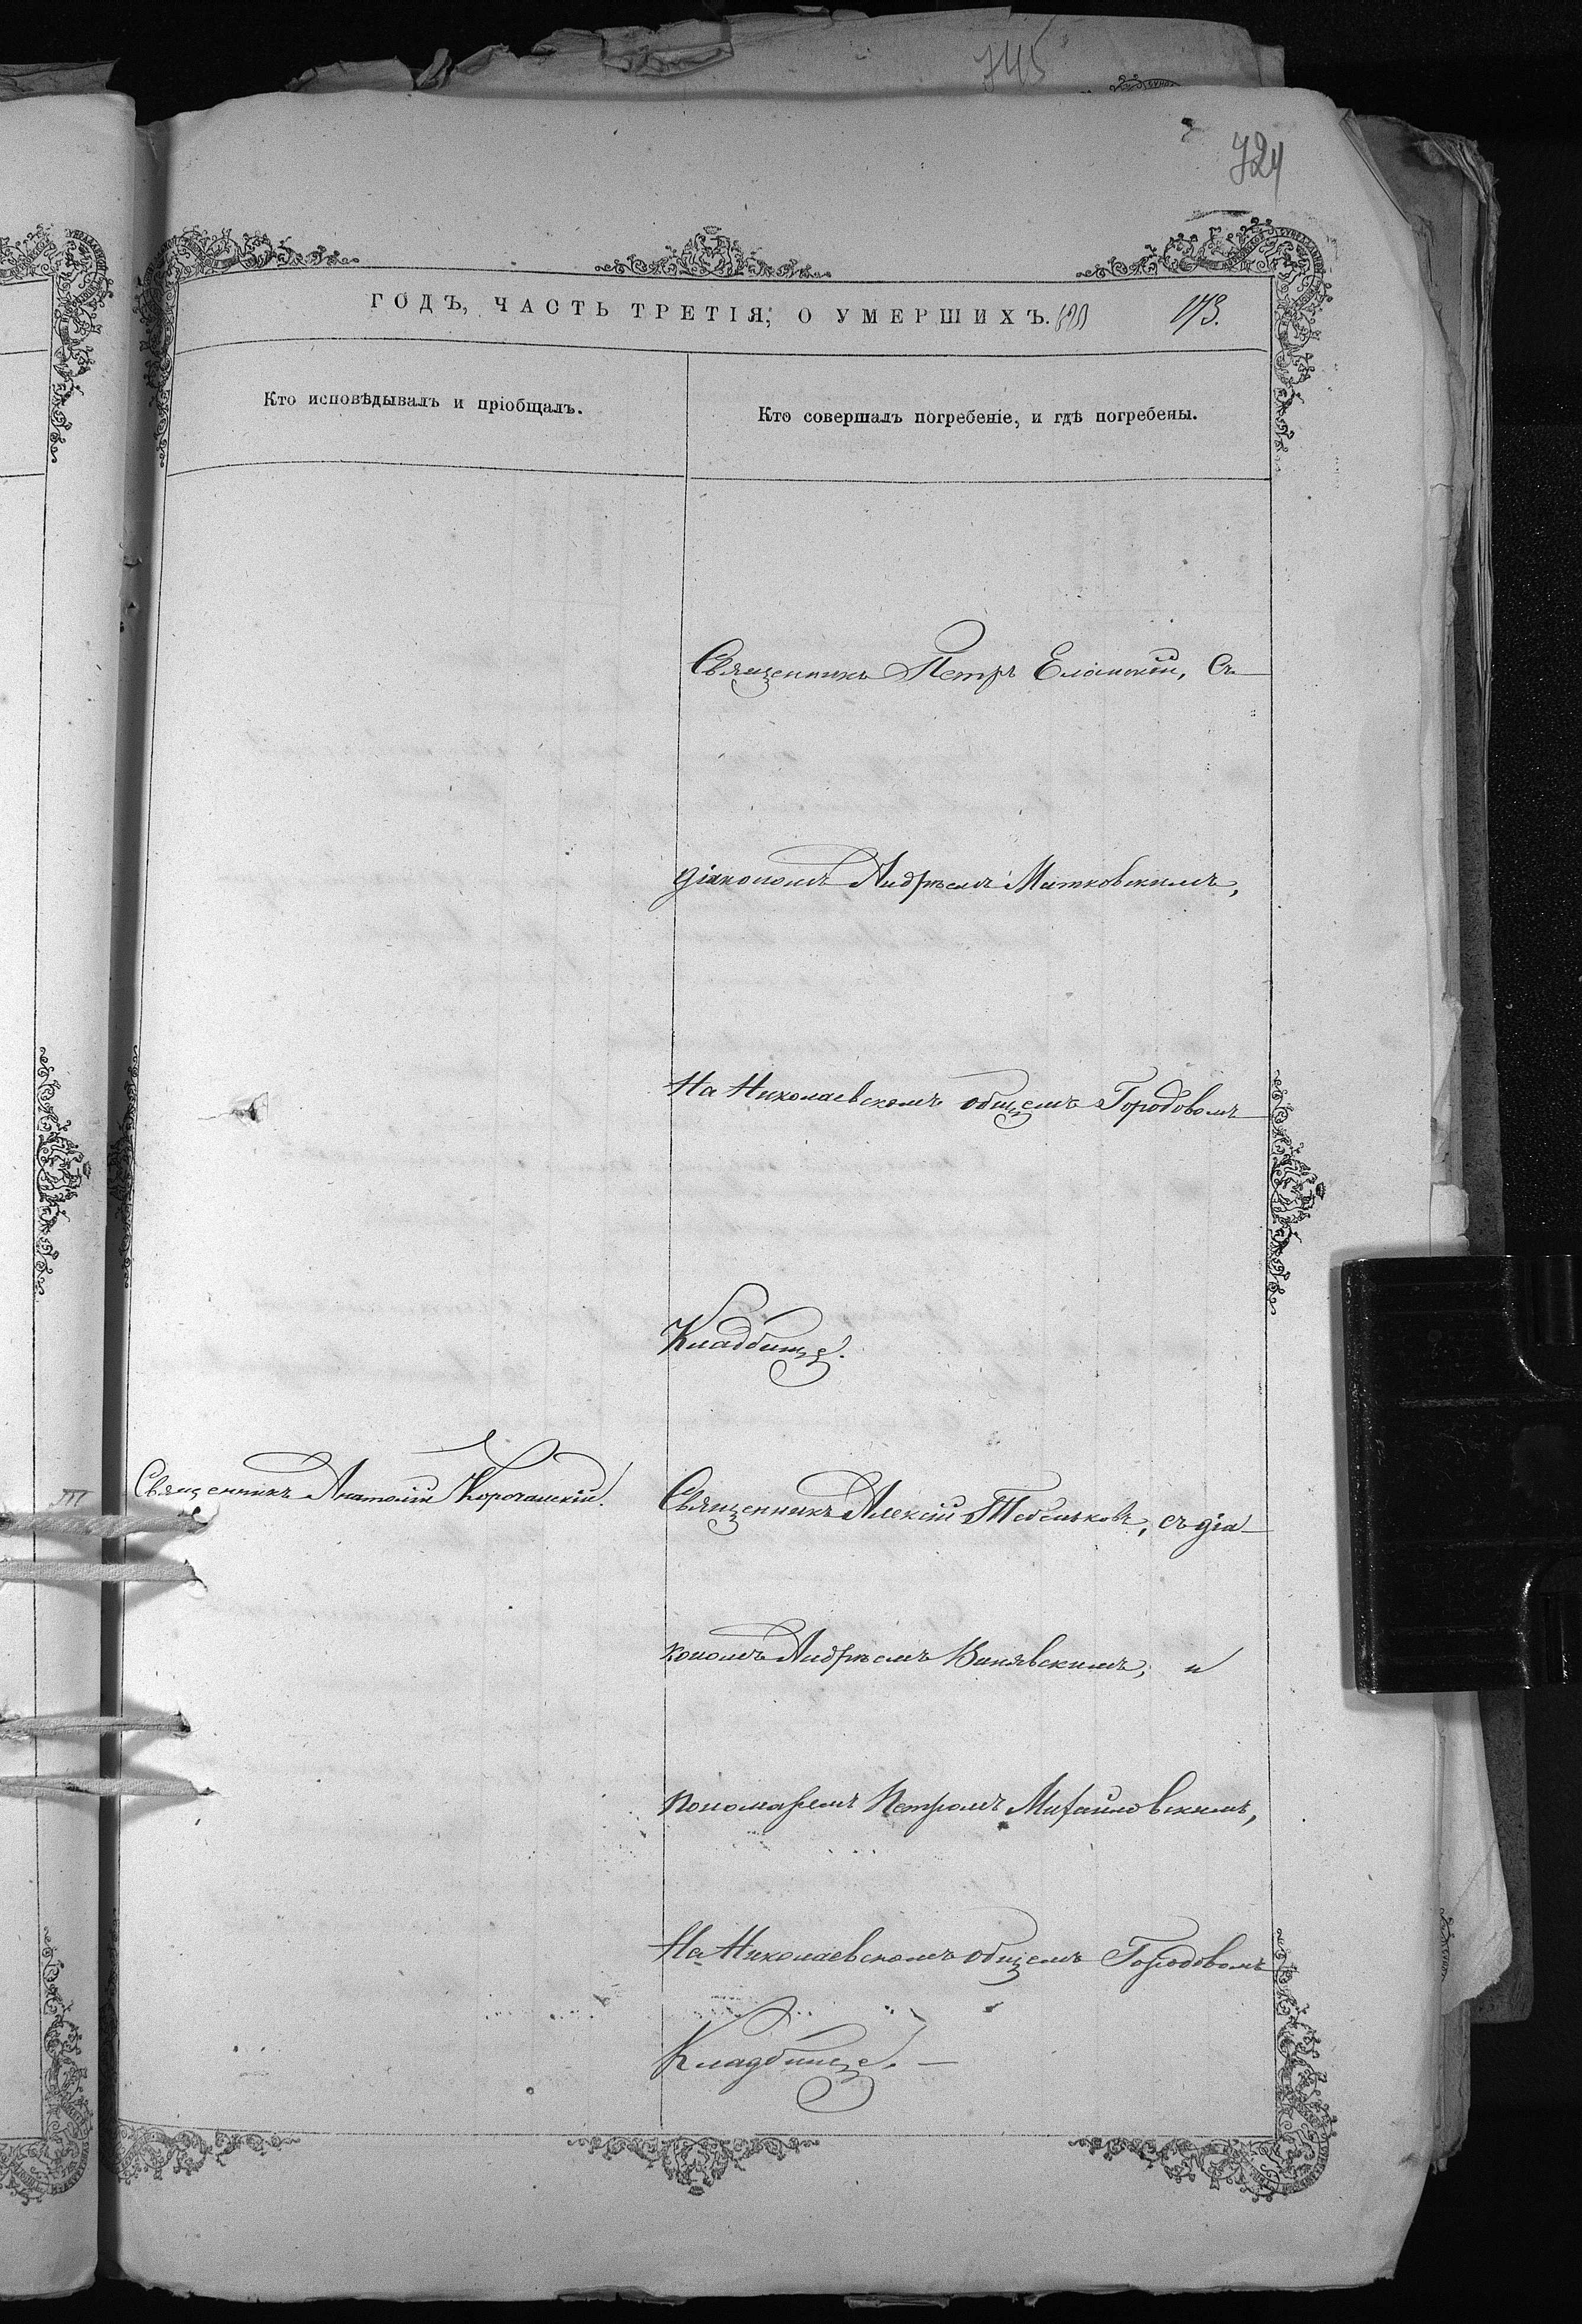 745
724
ГОДЪ, ЧАСТЬ ТРЕТІЯ, О УМЕРШИХЪ. 173.
Кто исповѣдывалъ и пріобщалъ.
Кто совершалъ погребеніе, и гдѣ погребены.
Священникъ Петръ Еланскій, съ
діакономъ Андреемъ Матковскимъ,
На Николаевскомъ общемъ Городовомъ
Кладбищѣ.
Священникъ Анатолій Корочанскій.
Священникъ Алексій Тебеньковъ, съ діа
кономъ Андреемъ Винявскимъ, и
пономаремъ Петромъ Михайловскимъ,
На Николаевскомъ общемъ Городовомъ
Кладбищѣ.